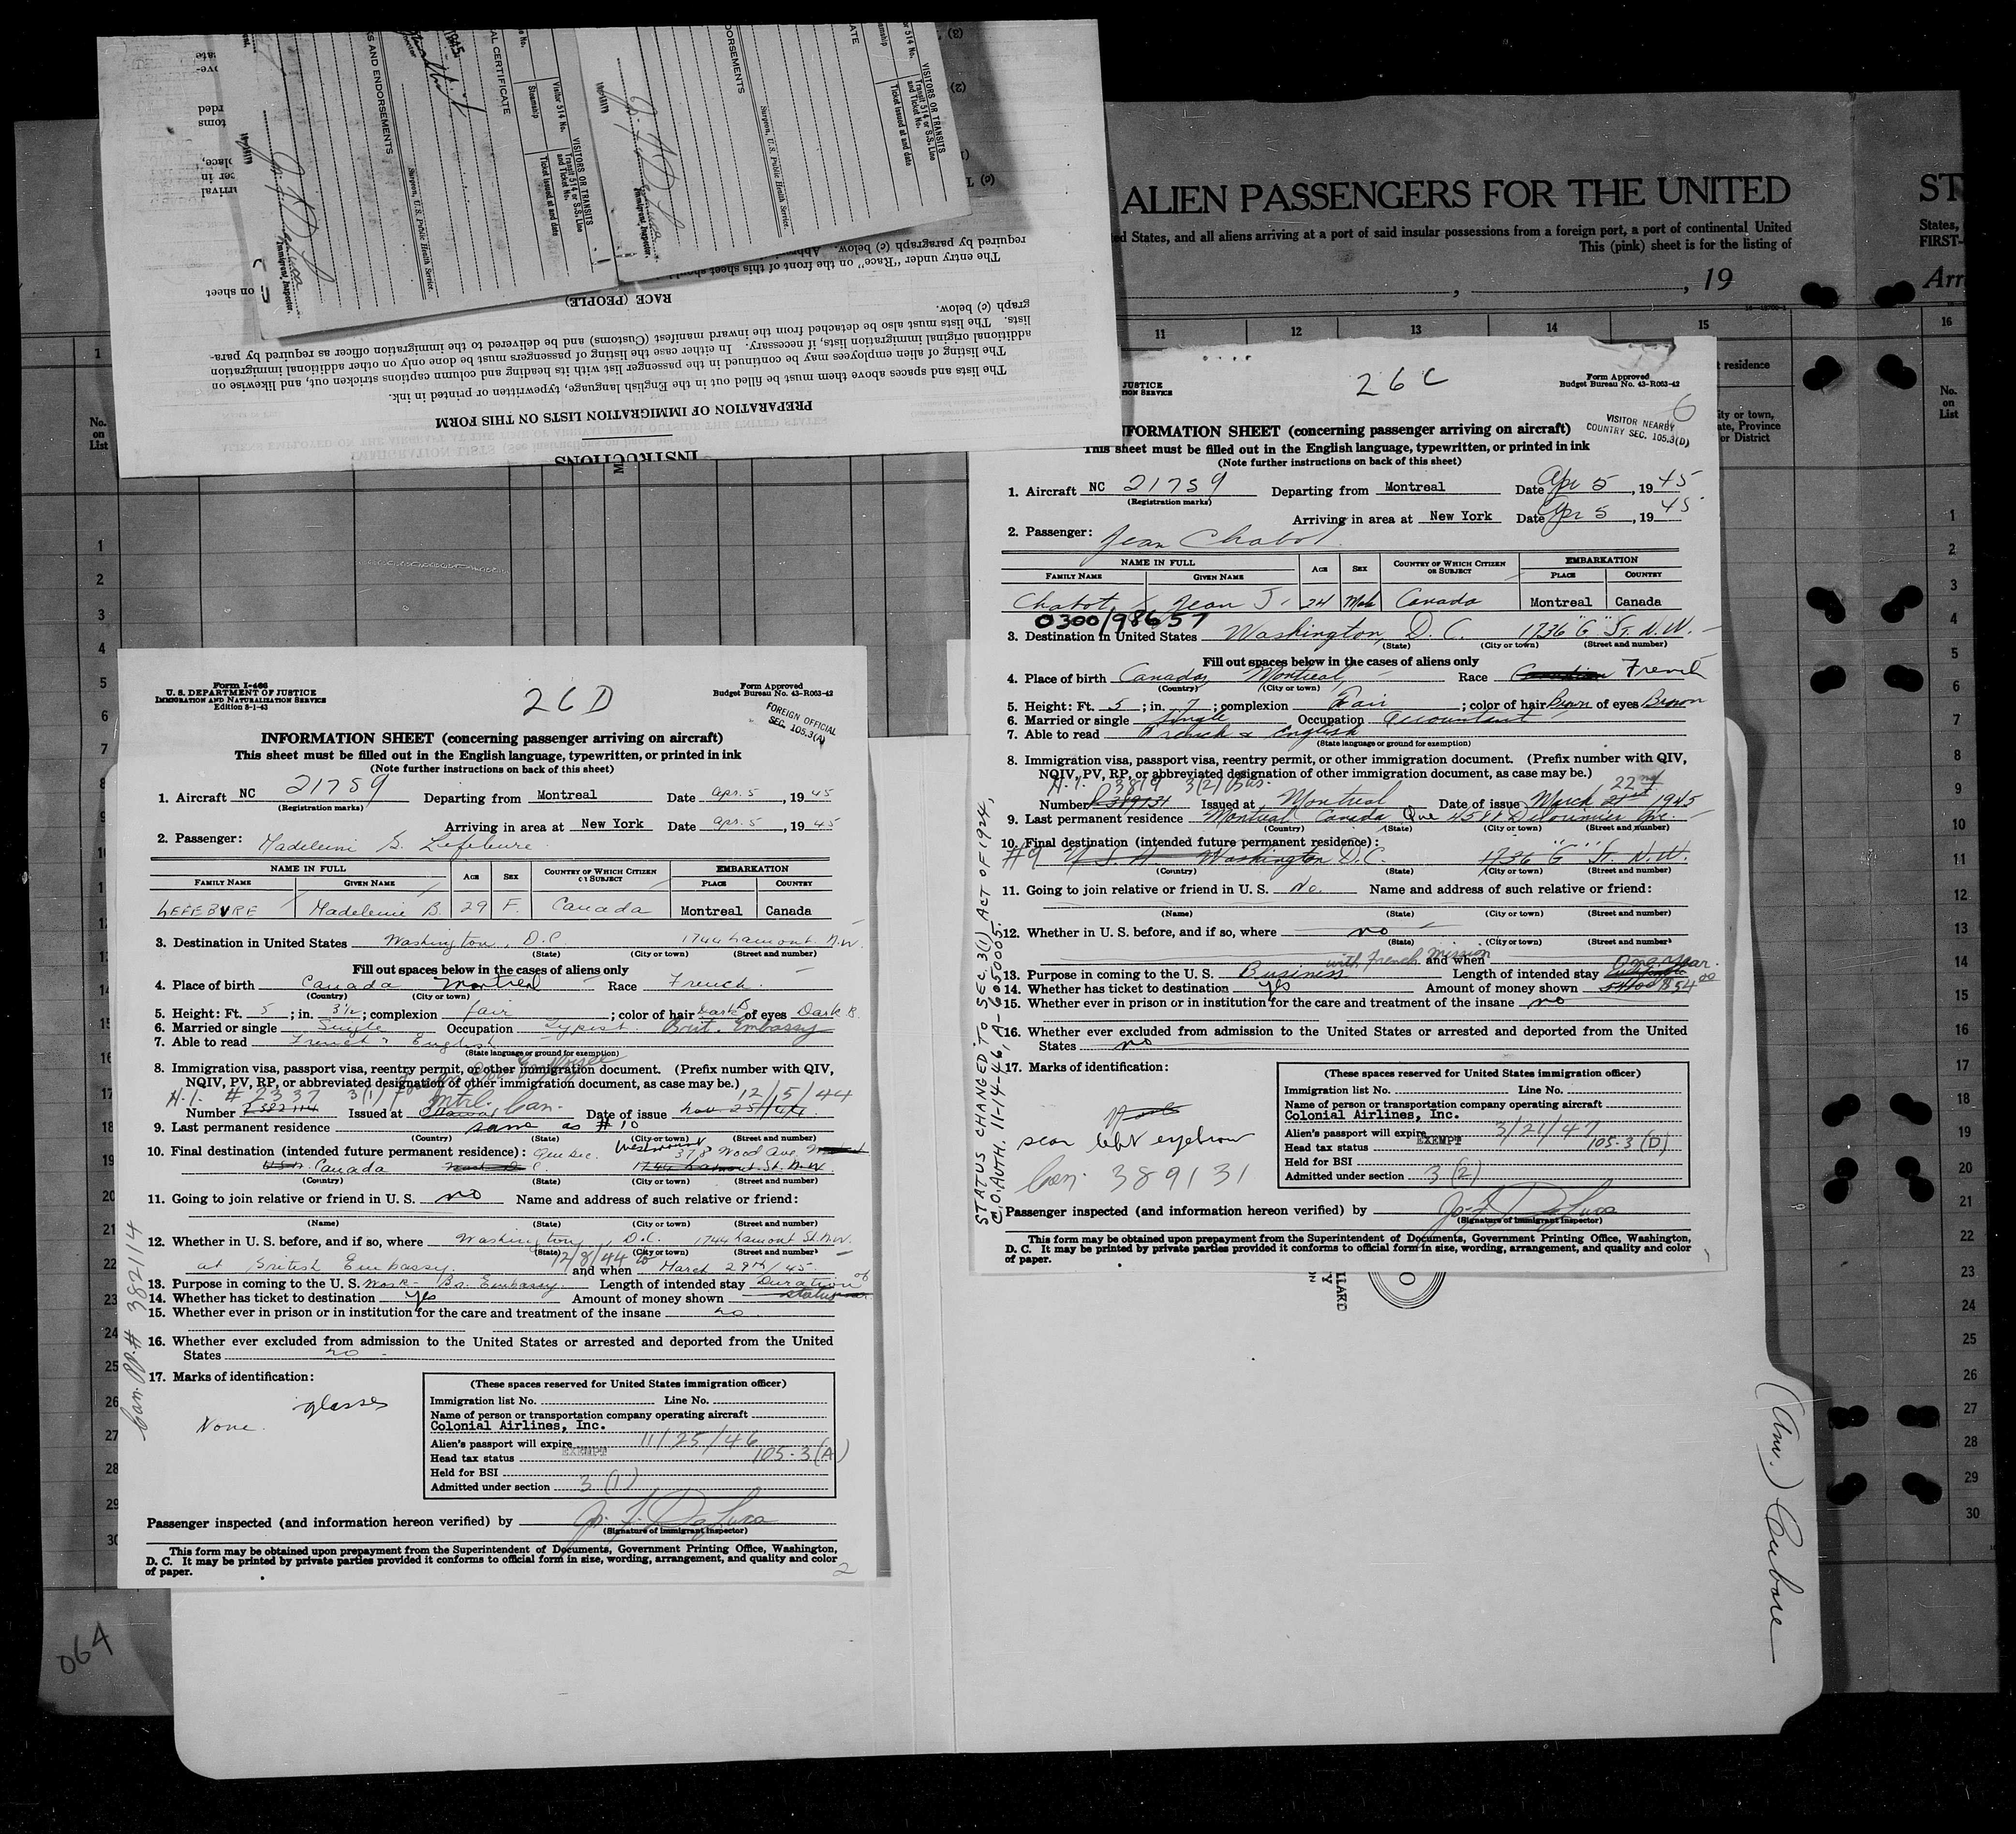 ALIEN PASSENGERS FOR THE UNITED
ed States, and all aliens arriving at a port of said insular possessions from a foreign port, a port of continental United
This (pink) sheet is for the listing of
, , 19
ST
States,
FIRST-
Arr
11 12 13 14 15 16
residence
ity or town,
ate, Province
or District
No.
on
List
INSTRUCTIONS
PREPARATION OF IMMIGRATION LISTS ON THIS FORM
The lists and spaces above them must be filled out in the English language, typewritten or printed in ink.
The listing of alien employees may be continued in the passenger list with its heading and column captions stricken out, and likewise on
additional original immigration lists, if necessary. In either case the listing of passengers must be done only on other additional immigration
lists. The lists must also be detached from the inward manifest (Customs) and be delivered to the immigration officer as required by para-
graph (c) below.
RACE (PEOPLE)
The entry under "Race" on the front of this sheet
required by paragraph (c) below.
on sheet
S AND ENDORSEMENTS
Surgeon, U.S. Public Health Service.
AL CERTIFICATE
Immigrant Inspector.
Visitor 514 No.
Steamship
VISITORS OR TRANSITS
Transit 514 or S.S. Line
and Ticket No.
Ticket issued at and date
DORSEMENTS
Surgeon, U.S. Public Health Service.
Immigrant Inspector.
VISITORS OR TRANSITS
Transit 514 or S.S. Line
and Ticket No.
Ticket issued at and date
Form I-466
U. S. DEPARTMENT OF JUSTICE
IMMIGRATION AND NATURALIZATION SERVICE
Edition 8-1-43
26D
Form Approved
Budget Bureau No. 43-R063-42
FOREIGN OFFICIAL
SEC. 105.3(A)
INFORMATION SHEET (concerning passenger arriving on aircraft)
This sheet must be filled out in the English language, typewritten, or printed in ink
(Note further instructions on back of this sheet)
1. Aircraft NC 21759 Departing from Montreal Date Apr. 5, 1945
(Registration marks)
Arriving in area at New York Date Apr. 5, 1945
2. Passenger: Madeleine B. Lefebvre
NAME IN FULL AGE SEX COUNTRY OF WHICH CITIZEN OR SUBJECT EMBARKATION
FAMILY NAME GIVEN NAME PLACE COUNTRY
LEFEBVRE Madeleine B. 29 F. Canada Montreal Canada
3. Destination in United States Washington, D.C. 1744 Lamont N.W.
(State) (City or town) (Street and number)
Fill out spaces below in the cases of aliens only
4. Place of birth Canada Montreal Race French.
(Country) (City or town)
5. Height: Ft. 5; in. 3½; complexion fair; color of hair Dark B of eyes Dark B.
6. Married or single Single Occupation Typist Brit. Embassy
7. Able to read French & English
(State language or ground for exemption)
8. Immigration visa, passport visa, reentry permit, or other immigration document. (Prefix number with QIV,
NQIV, PV, RP, or abbreviated designation of other immigration document, as case may be.)
N.I. #2337 3(1) Mtrl. Can. 12/5/44
Number 382114 Issued at Ottawa Date of issue Nov 25/44
9. Last permanent residence same as #10
(Country) (State) (City or town) (Street and number)
10. Final destination (intended future permanent residence): Quebec. Westmount 378 Wood Ave.
U.S.A. Canada 1744 Lamont St. N.W.
(Country) (State) (City or town) (Street and number)
11. Going to join relative or friend in U. S. no Name and address of such relative or friend:
(Name) (State) (City or town) (Street and number)
12. Whether in U. S. before, and if so, where Washington, D.C. 1744 Lamont St. N.W.
(State) (City or town) (Street and number)
at British Embassy. 12/8/44 to and when March 29th/45.
13. Purpose in coming to the U. S. Work - Br. Embassy Length of intended stay Duration of
14. Whether has ticket to destination yes Amount of money shown status
15. Whether ever in prison or in institution for the care and treatment of the insane no
16. Whether ever excluded from admission to the United States or arrested and deported from the United
States no
17. Marks of identification:
None. glasses
Can. PP.# 382114
(These spaces reserved for United States immigration officer)
Immigration list No. Line No.
Name of person or transportation company operating aircraft
Colonial Airlines, Inc.
Alien's passport will expire 11/25/46
Head tax status EXEMPT 105-3(A)
Held for BSI
Admitted under section 3(1)
Passenger inspected (and information hereon verified) by
(Signature of immigrant inspector)
This form may be obtained upon prepayment from the Superintendent of Documents, Government Printing Office, Washington,
D. C. It may be printed by private parties provided it conforms to official form in size, wording, arrangement, and quality and color
of paper.
2
064
JUSTICE
ION SERVICE
26C
Form Approved
Budget Bureau No. 43-R063-42
6
VISITOR NEARBY
COUNTRY SEC. 105.3(D)
FORMATION SHEET (concerning passenger arriving on aircraft)
This sheet must be filled out in the English language, typewritten, or printed in ink
(Note further instructions on back of this sheet)
1. Aircraft NC 21759 Departing from Montreal Date Apr 5, 1945
(Registration marks)
Arriving in area at New York Date Apr 5, 1945
2. Passenger: Jean Chabot.
NAME IN FULL AGE SEX COUNTRY OF WHICH CITIZEN OR SUBJECT EMBARKATION
FAMILY NAME GIVEN NAME PLACE COUNTRY
Chabot, Jean J. 24 Male Canada Montreal Canada
0300/98657
3. Destination in United States Washington, D.C. 1736 "G" St. N.W.
(State) (City or town) (Street and number)
Fill out spaces below in the cases of aliens only
4. Place of birth Canada, Montreal, Race Canadian French
(Country) (City or town)
5. Height: Ft. 5; in. 7; complexion Fair; color of hair Brown of eyes Brown
6. Married or single Single Occupation Accountant
7. Able to read French & English
(State language or ground for exemption)
8. Immigration visa, passport visa, reentry permit, or other immigration document. (Prefix number with QIV,
NQIV, PV, RP, or abbreviated designation of other immigration document, as case may be.)
N.I. 3819 3(2) Bus. 22nd
Number 389131 Issued at Montreal Date of issue March 21st 1945
9. Last permanent residence Montreal Canada Que 4581 Delorimier Ave.
(Country) (State) (City or town) (Street and number)
10. Final destination (intended future permanent residence):
#9 U.S.A. Washington D.C. 1736 "G" St. N.W.
(Country) (State) (City or town) (Street and number)
11. Going to join relative or friend in U. S. No. Name and address of such relative or friend:
(Name) (State) (City or town) (Street and number)
12. Whether in U. S. before, and if so, where no
(State) (City or town) (Street and number)
with French Mission and when One year.
13. Purpose in coming to the U. S. Business Length of intended stay
14. Whether has ticket to destination yes Amount of money shown $54.00
15. Whether ever in prison or in institution for the care and treatment of the insane no
16. Whether ever excluded from admission to the United States or arrested and deported from the United
States no
17. Marks of identification:
scar left eyebrow
Can. 389131
STATUS CHANGED TO SEC. 3(1) ACT OF 1924,
C.O. AUTH. 11-14-46, A-6050005.
(These spaces reserved for United States immigration officer)
Immigration list No. Line No.
Name of person or transportation company operating aircraft
Colonial Airlines, Inc.
Alien's passport will expire 3/21/47
Head tax status EXEMPT 105-3(D)
Held for BSI
Admitted under section 3(2)
Passenger inspected (and information hereon verified) by
(Signature of immigrant inspector)
This form may be obtained upon prepayment from the Superintendent of Documents, Government Printing Office, Washington,
D. C. It may be printed by private parties provided it conforms to official form in size, wording, arrangement, and quality and color
of paper.
LLARD